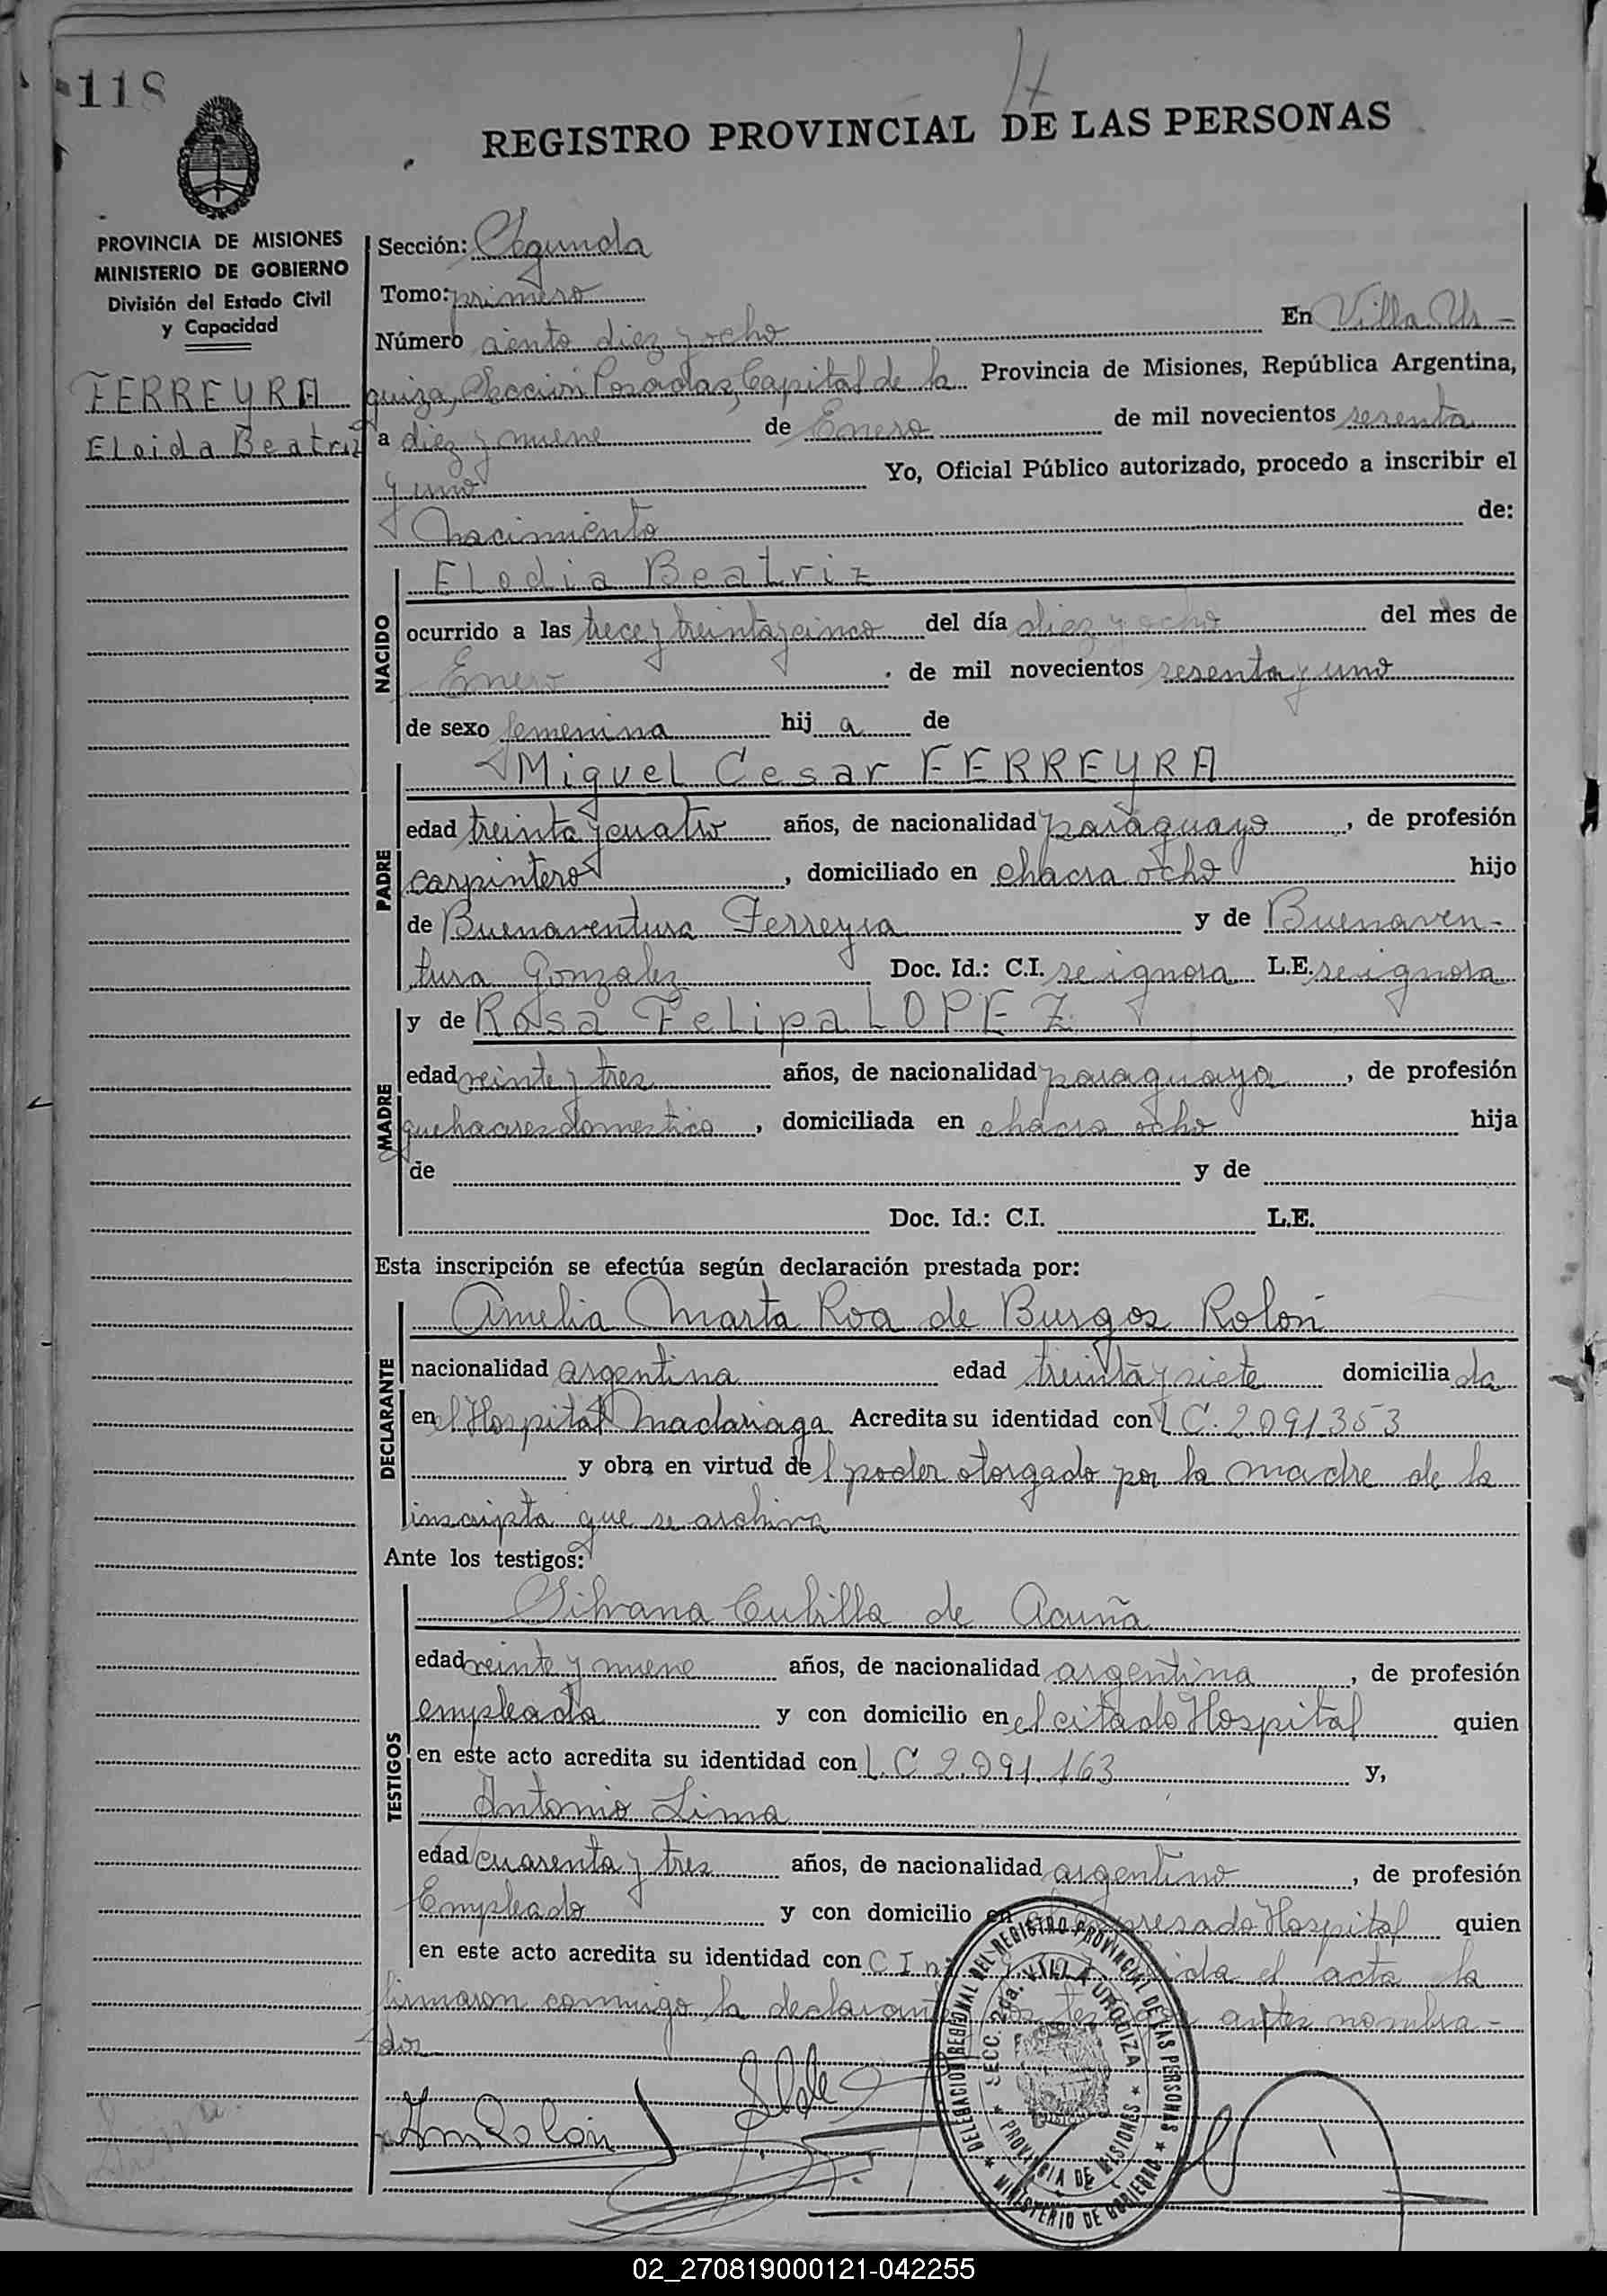 118
REGISTRO PROVINCIAL DE LAS PERSONAS
PROVINCIA DE MISIONES
MINISTERIO DE GOBIERNO
División del Estado Civil
y Capacidad
FERREYRA
Eloida Beatriz
Sección: Segunda
Tomo: primero
Número ciento diez y ocho En Villa Ur-
quiza, Sección Posadas, Capital de la Provincia de Misiones, República Argentina,
a diez y nueve de Enero de mil novecientos sesenta
y uno Yo, Oficial Público autorizado, procedo a inscribir el
Nacimiento de:
NACIDO
Elodia Beatriz
ocurrido a las trece y treinta y cinco del día diez y ocho del mes de
Enero de mil novecientos sesenta y uno
de sexo femenina hij a de
PADRE
Miguel Cesar FERREYRA
edad treinta y cuatro años, de nacionalidad paraguayo, de profesión
carpintero, domiciliado en chacra ocho hijo
de Buenaventura Ferreyra y de Buenaven-
tura Gonzalez Doc. Id.: C.I. se ignora L.E. se ignora
MADRE
y de Rosa Felipa LOPEZ
edad veinte y tres años, de nacionalidad paraguaya, de profesión
quehaceres domestico, domiciliada en chacra ocho hija
de y de
Doc. Id.: C.I. L.E.
Esta inscripción se efectúa según declaración prestada por:
DECLARANTE
Amelia Marta Roa de Burgos Rolón
nacionalidad argentina edad treinta y siete domicilia da
en el Hospital Madariaga Acredita su identidad con L C. 2.091.353
y obra en virtud de l poder otorgado por la madre de la
inscripta que se archiva
Ante los testigos:
TESTIGOS
Silvana Cubilla de Acuña
edad veinte y nueve años, de nacionalidad argentina, de profesión
empleada y con domicilio en el citado Hospital quien
en este acto acredita su identidad con L. C 2.091.163 y,
Antonio Lima
edad cuarenta y tres años, de nacionalidad argentino, de profesión
Empleado y con domicilio en el expresado Hospital quien
en este acto acredita su identidad con C I n° el acta la
firmaron conmigo, la declarante los testigos antes nombra-
dos
Am Rolón
DELEGACION REGIONAL DEL REGISTRO PROVINCIAL DE LAS PERSONAS
MINISTERIO DE GOBIERNO
SECC. 2da. VILLA URQUIZA
PROVINCIA DE MISIONES
02_270819000121-042255